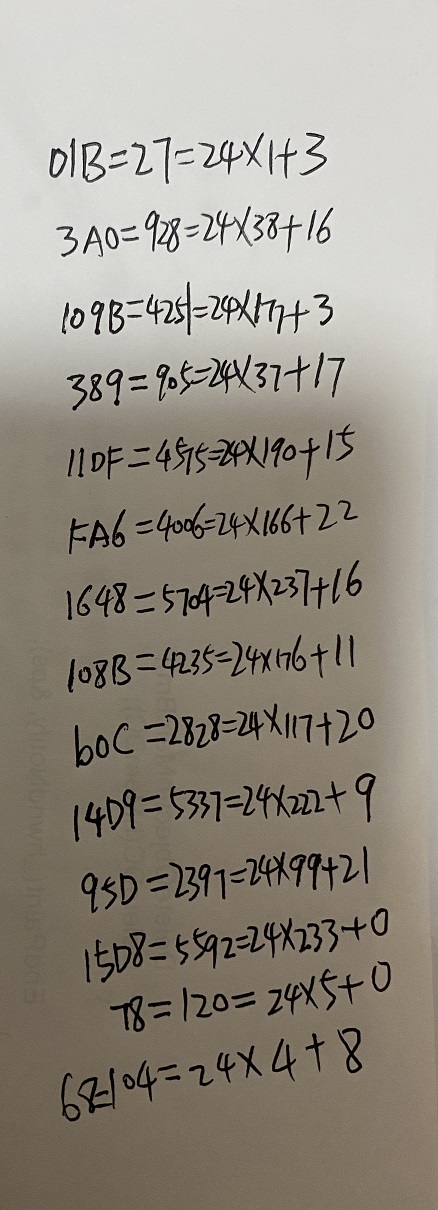 01B=27=24×1+3
3A0=928=24×38+16
109B=4251=24×177+3
389=905=24×37+17
11DF=4575=24×190+15
FA6=4006=24×166+22
1648=5704=24×237+16
108B=4235=24×176+11
b0C=2828=24×117+20
14D9=5337=24×222+9
95D=2397=24×99+21
15D8=5592=24×233+0
78=120=24×5+0
68=104=24×4+8